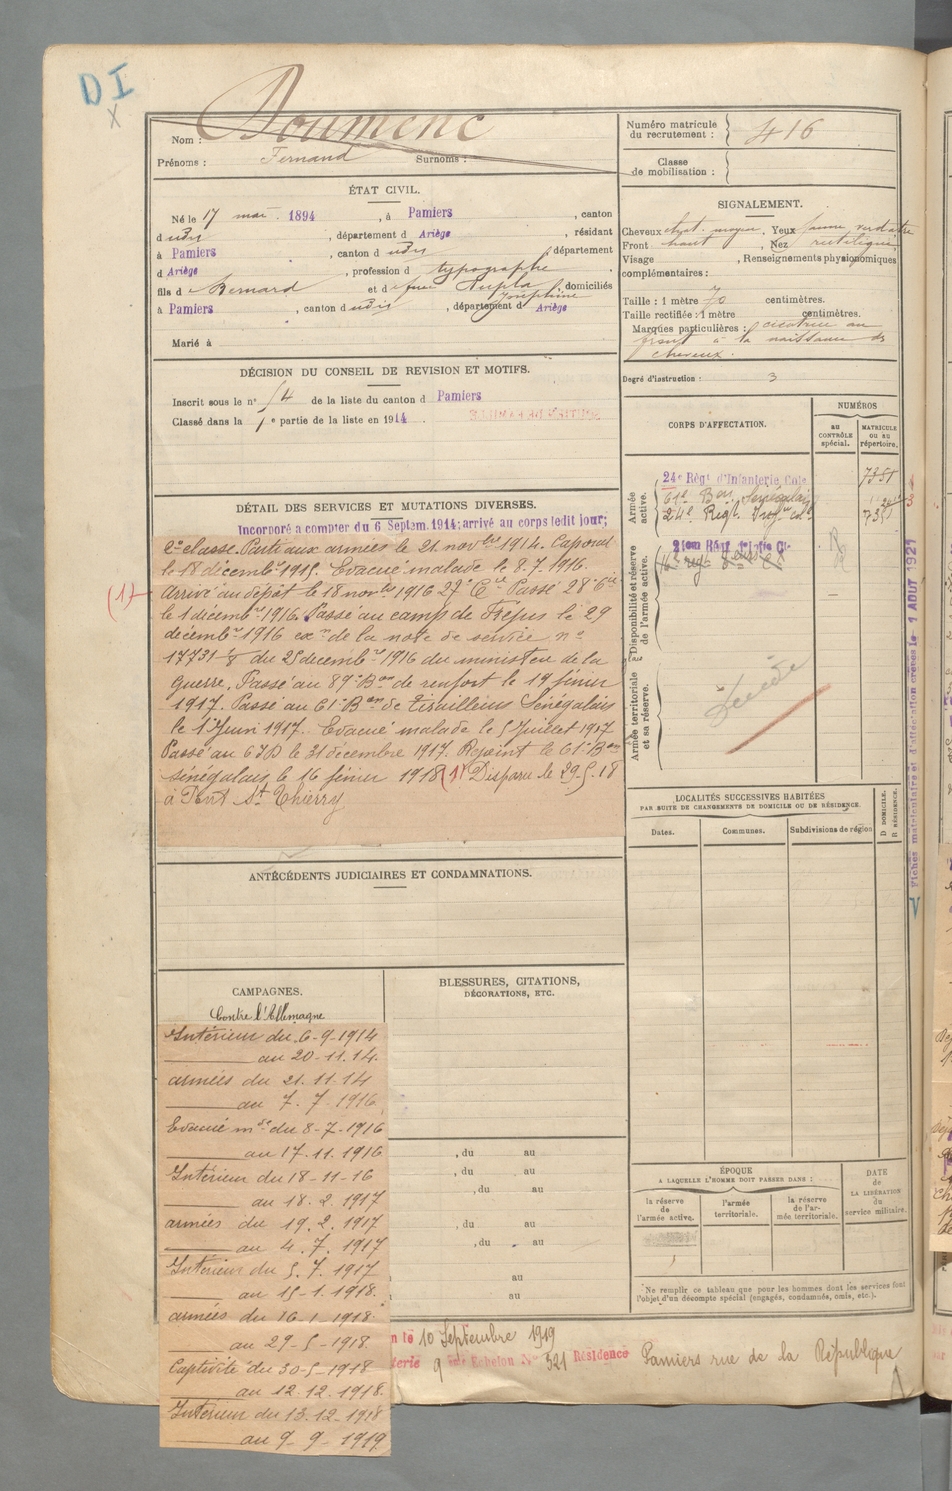 DI
X
Doumenc
Nom :
Prénoms : Fernand Surnoms :
ÉTAT CIVIL.
Né le 17 mai 1894, à Pamiers, canton
d udit, département d Ariège, résidant
à Pamiers, canton d udit, département
d Ariège, profession d typographe
fils d e Bernard et d e feue Joséphine domiciliés
à Pamiers, canton d udit, département d Ariège
Marié à
DÉCISION DU CONSEIL DE REVISION ET MOTIFS.
Inscrit sous le n° 54 de la liste du canton d Pamiers
Classé dans la 1e partie de la liste en 1914
DÉTAIL DES SERVICES ET MUTATIONS DIVERSES.
Incorporé a compter du 6 Septem. 1914; arrivé au corps ledit jour;
2e classe. Parti aux armées le 21 novbre 1914. Caporal
le 18 décembre 1915. Evacué malade le 8.7.1916.
(1) Arrivé au dépôt le 18 novbre 1916 27e Cie Passé 28e Cie
le 1 décembre 1916. Passé au camp de Fréjus le 29
décembre 1916 exon de la note de service n°
17731 1/8 du 25 décembre 1916 du ministère de la
Guerre. Passé au 89e Bon de renfort le 19 février
1917. Passé au 61e Bon de tirailleurs Sénégalais
le 1 Juin 1917. Evacué malade le 5 juillet 1917
Passé au 67 D le 31 décembre 1917. Rejoint le 61e Bon
sénégalais le 16 février 1918 (1) Disparu le 29.5.18
à Pont St Thierry
ANTÉCÉDENTS JUDICIAIRES ET CONDAMNATIONS.
CAMPAGNES.
Contre l'Allemagne
Intérieur du 6-9-1914
au 20-11.14.
armées du 21.11.14
au 7.7.1916
Evacué mde du 8-7-1916
au 17.11.1916
Intérieur du 18-11-16
au 18.2.1917
armées du 19.2.1917
au 4.7.1917
Intérieur du 5.7.1917
au 15-1.1918.
armées du 16-1-1918
au 29-5-1918.
Captivité du 30-5-1918
au 12.12.1918.
Intérieur du 13.12-1918
au 9-9-1919
BLESSURES, CITATIONS,
DÉCORATIONS, ETC.
, du au
, du au
, du au
, du au
, du au
au
au
Numéro matricule
du recrutement : 416
Classe
de mobilisation :
SIGNALEMENT.
Cheveux chat. moyen, Yeux jaune verdatre
Front haut, Nez rectiligne
Visage , Renseignements physionomiques
complémentaires :
Taille : 1 mètre 70 centimètres.
Taille rectifiée : 1 mètre centimètres.
Marques particulières : cicatrice au
front à la naissance des
cheveux.
Degré d'instruction : 3
CORPS D'AFFECTATION.
NUMÉROS
au
CONTRÔLE
spécial.
MATRICULE
ou au
répertoire.
Armée
active.
24e Régt d'Infanterie Cole
7351
61e Bon Sénégalais
24e Regt
Disponibilité et réserve
de l'armée active.
Armée territoriale
et sa réserve.
LOCALITÉS SUCCESSIVES HABITÉES
PAR SUITE DE CHANGEMENTS DE DOMICILE OU DE RÉSIDENCE.
Dates. Communes. Subdivisions de région
D DOMICILE.
R RÉSIDENCE.
ÉPOQUE
A LAQUELLE L'HOMME DOIT PASSER DANS :
la réserve
de
l'armée active.
l'armée
territoriale.
la réserve
de l'ar-
mée territoriale.
DATE
de
LA LIBÉRATION
du
service militaire.
Ne remplir ce tableau que pour les hommes dont les services font
l'objet d'un décompte spécial (engagés, condamnés, omis, etc.).
n le 10 Septembre 1919
terie 9 me Echelon N° 321 Résidence Pamiers rue de la République
Fiches matriculaire et d'affectation créées le 1 AOUT 1921
V